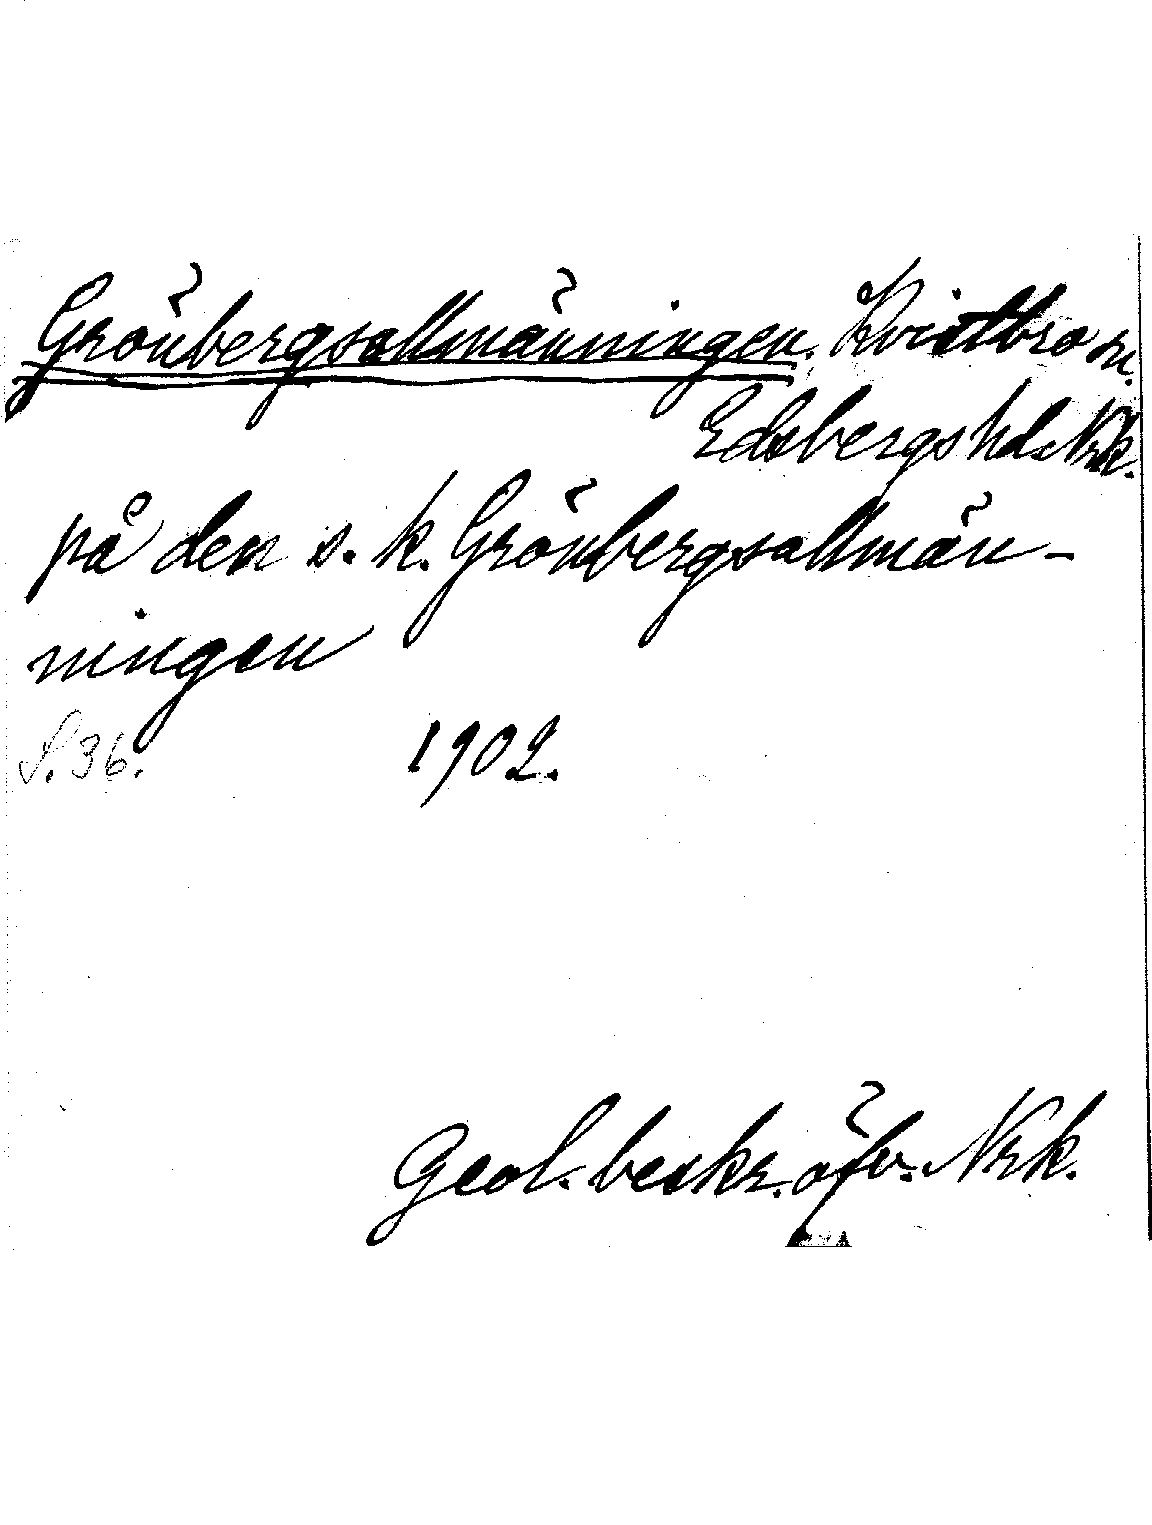 Grönbergsallmänningen. Kvistbro sn.
Edsbergs hd. Nrk.
på den s. k. Grönbergsallmän-
ningen
S. 36. 1902.
Geol. beskr. öfv. Nrk.